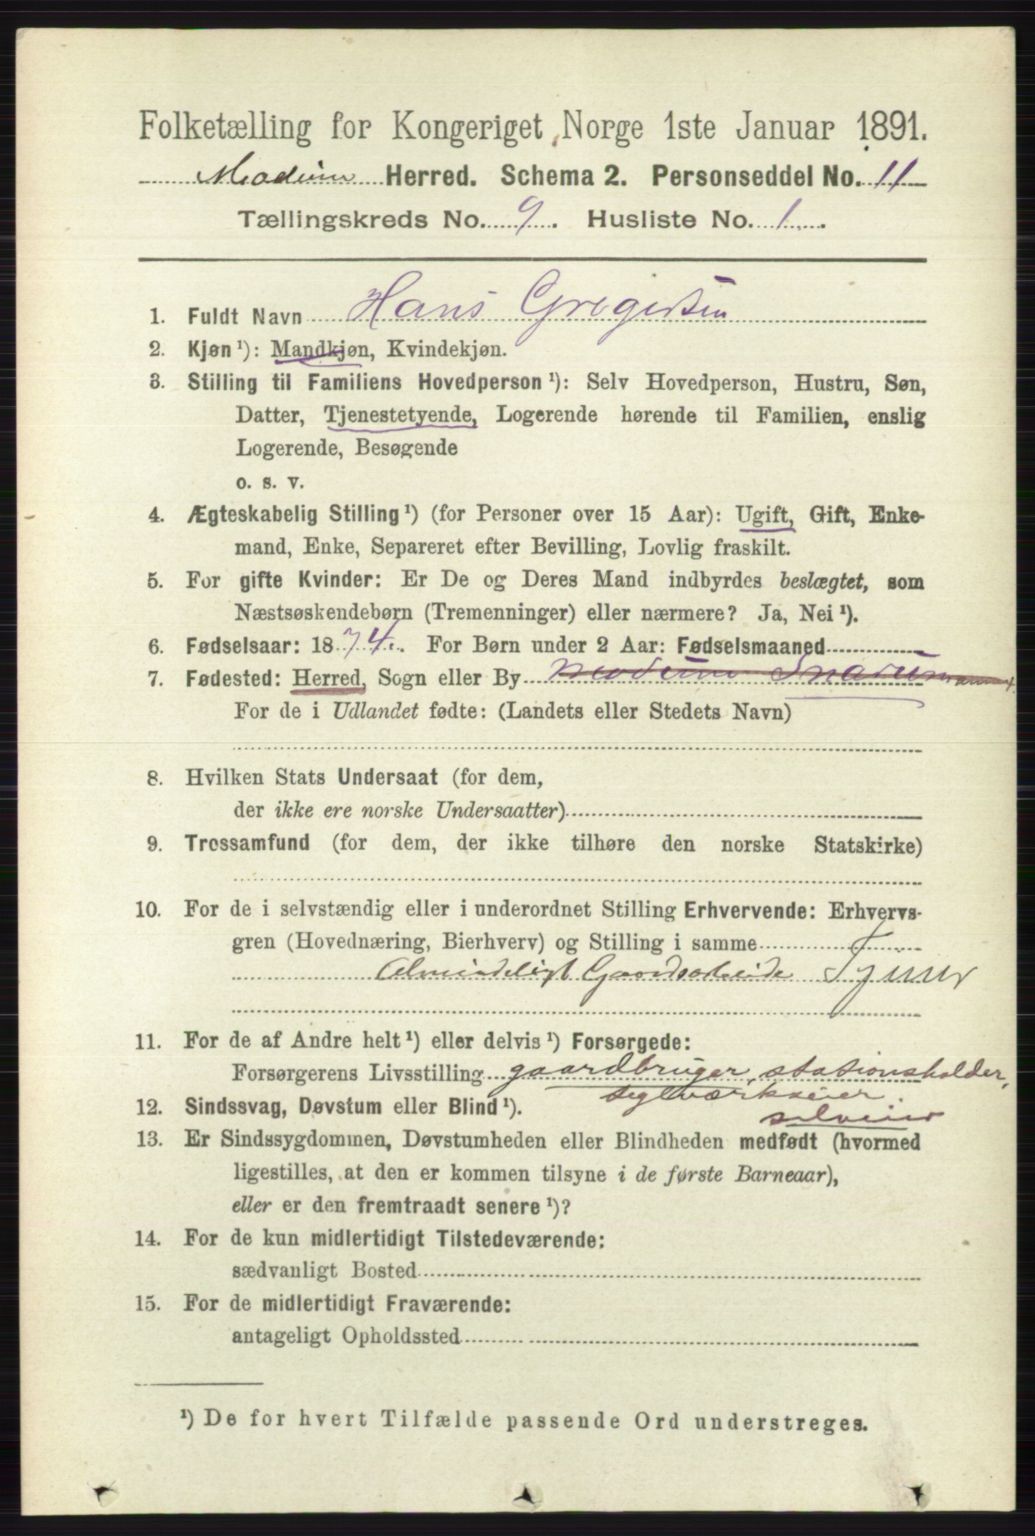 Folketælling for Kongeriget Norge 1ste Januar 1891.
Modum Herred. Schema 2. Personseddel No. 11
Tællingskreds No. 9. Husliste No. 1.
1. Fuldt Navn Hans Gregersen
2. Kjøn¹): Mandkjøn, Kvindekjøn.
3. Stilling til Familiens Hovedperson¹): Selv Hovedperson, Hustru, Søn,
Datter, Tjenestetyende, Logerende hørende til Familien, enslig
Logerende, Besøgende
o. s. v.
4. Ægteskabelig Stilling¹) (for Personer over 15 Aar): Ugift, Gift, Enke-
mand, Enke, Separeret efter Bevilling, Lovlig fraskilt.
5. For gifte Kvinder: Er De og Deres Mand indbyrdes beslægtet, som
Næstsøskendebørn (Tremenninger) eller nærmere? Ja, Nei¹).
6. Fødselsaar: 1874. For Børn under 2 Aar: Fødselsmaaned
7. Fødested: Herred, Sogn eller By Modum Snarum
For de i Udlandet fødte: (Landets eller Stedets Navn)
8. Hvilken Stats Undersaat (for dem,
der ikke ere norske Undersaatter)
9. Trossamfund (for dem, der ikke tilhøre den norske Statskirke)
10. For de i selvstændig eller i underordnet Stilling Erhvervende: Erhvervs-
gren (Hovednæring, Bierhverv) og Stilling i samme T
Almindeligt Gaardsarbeide Tjener
11. For de af Andre helt¹) eller delvis¹) Forsørgede:
Forsørgerens Livsstilling gaardbruger, stationsholder,
teglværkseier.
12. Sindssvag, Døvstum eller Blind¹). selveier
13. Er Sindssygdommen, Døvstumheden eller Blindheden medfødt (hvormed
ligestilles, at den er kommen tilsyne i de første Barneaar),
eller er den fremtraadt senere¹)?
14. For de kun midlertidigt Tilstedeværende:
sædvanligt Bosted
15. For de midlertidigt Fraværende:
antageligt Opholdssted
¹) De for hvert Tilfælde passende Ord understreges.